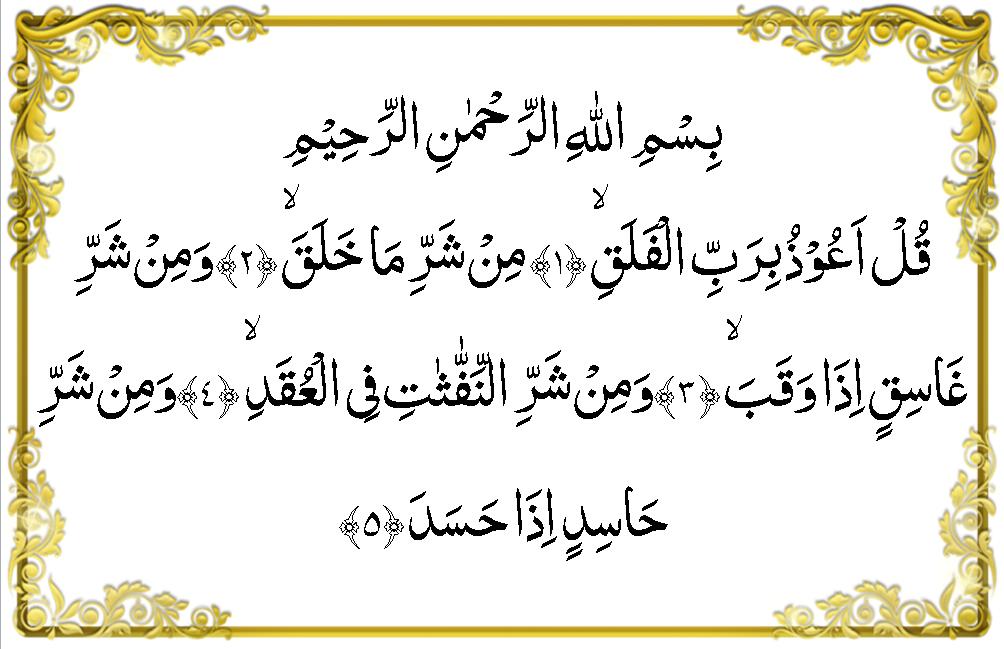 بِسْمِ اللهِ الرَّحْمٰنِ الرَّحِيْمِ
قُلْ اَعُوْذُ بِرَبِّ الْفَلَقِۙ ﴿١﴾ مِنْ شَرِّ مَا خَلَقَۙ ﴿٢﴾ وَمِنْ شَرِّ
غَاسِقٍ اِذَا وَقَبَۙ ﴿٣﴾ وَمِنْ شَرِّ النَّفّٰثٰتِ فِى الْعُقَدِۙ ﴿٤﴾ وَمِنْ شَرِّ
حَاسِدٍ اِذَا حَسَدَ ﴿٥﴾